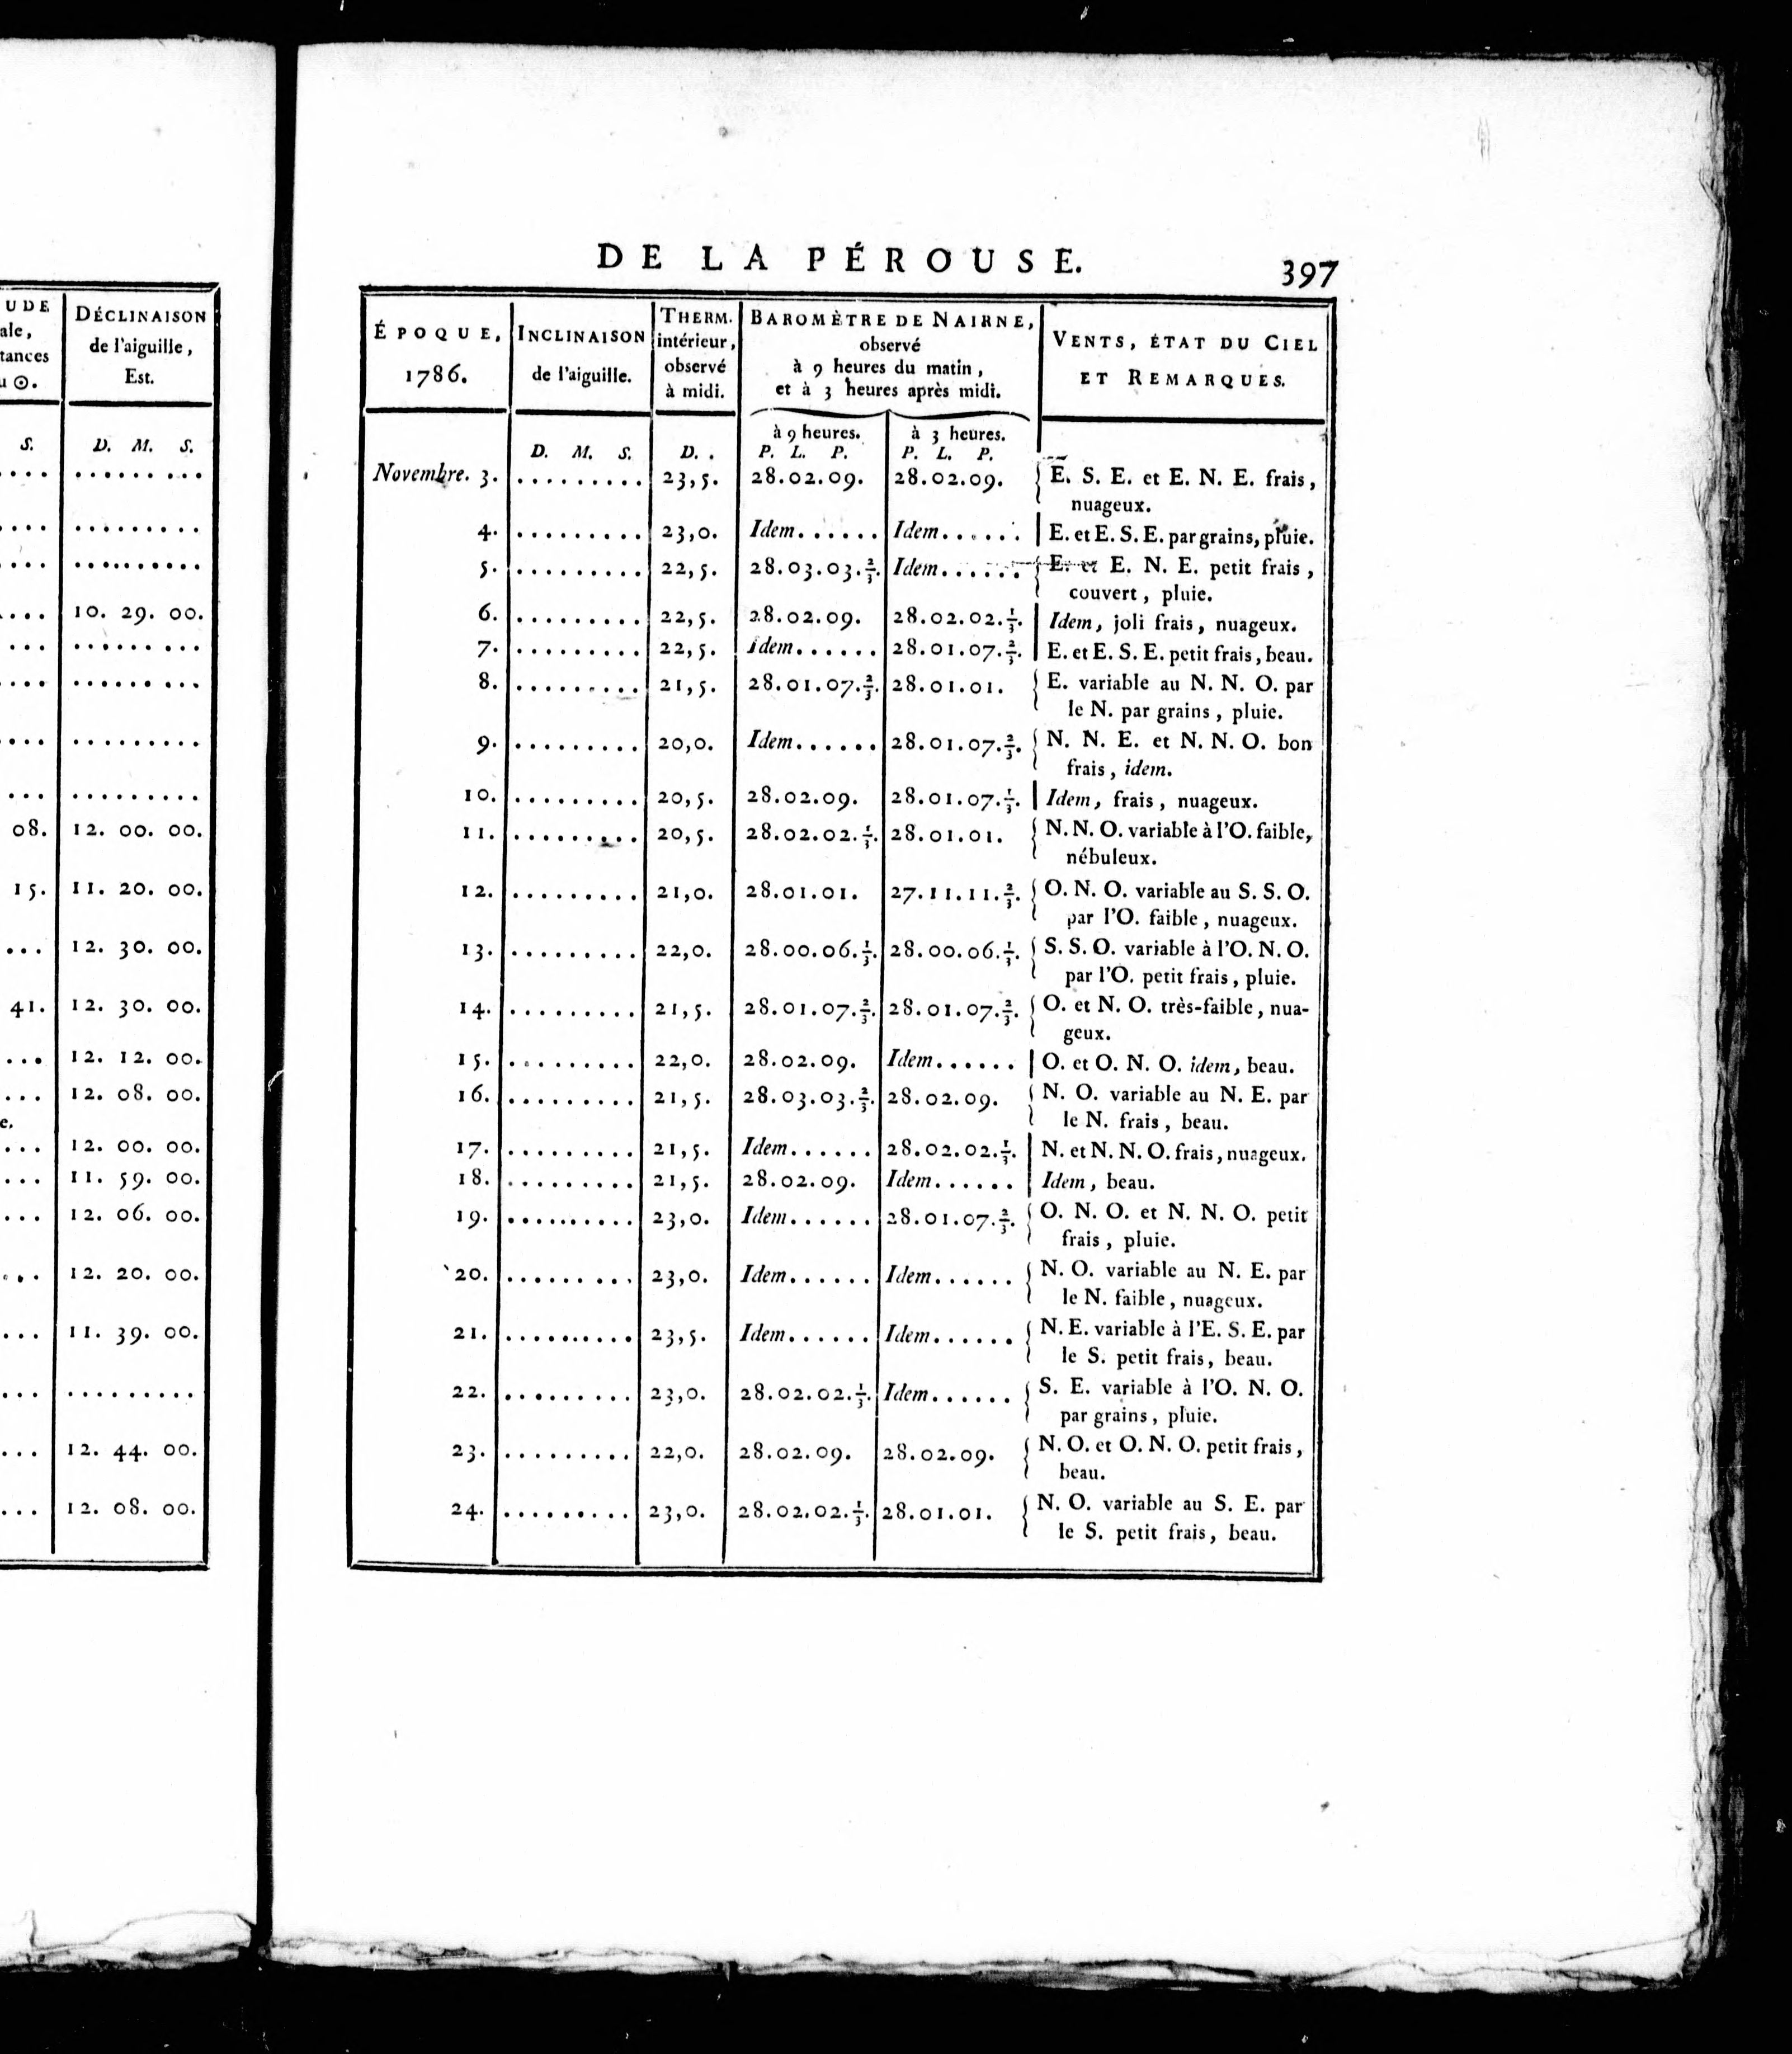 UDE
ale,
tances
u ☉.
S.
08.
15.
41.
e.
DÉCLINAISON
de l'aiguille,
Est.
D. M. S.
. . . . . . . . .
. . . . . . . . .
. . . . . . . . .
10. 29. 00.
. . . . . . . . .
. . . . . . . . .
. . . . . . . . .
. . . . . . . . .
12. 00. 00.
11. 20. 00.
12. 30. 00.
12. 30. 00.
12. 12. 00.
12. 08. 00.
12. 00. 00.
11. 59. 00.
12. 06. 00.
12. 20. 00.
11. 39. 00.
. . . . . . . . .
12. 44. 00.
12. 08. 00.
DE LA PÉROUSE. 397
ÉPOQUE,
1786.
INCLINAISON
de l'aiguille.
THERM.
intérieur,
observé
à midi.
BAROMÈTRE DE NAIRNE,
observé
à 9 heures du matin,
et à 3 heures après midi.
VENTS, ÉTAT DU CIEL
ET REMARQUES.
à 9 heures. à 3 heures.
D. M. S. D. . P. L. P. P. L. P.
Novembre. 3. . . . . . . . . . 23,5. 28.02.09. 28.02.09. E. S. E. et E. N. E. frais,
nuageux.
4. . . . . . . . . . 23,0. Idem...... Idem...... E. et E. S. E. par grains, pluie.
5. . . . . . . . . . 22,5. 28.03.03.2/3. Idem...... E. et E. N. E. petit frais,
couvert, pluie.
6. . . . . . . . . . 22,5. 28.02.09. 28.02.02.1/3. Idem, joli frais, nuageux.
7. . . . . . . . . . 22,5. Idem...... 28.01.07.2/3. E. et E. S. E. petit frais, beau.
8. . . . . . . . . . 21,5. 28.01.07.2/3. 28.01.01. E. variable au N. N. O. par
le N. par grains, pluie.
9. . . . . . . . . . 20,0. Idem...... 28.01.07.2/3. N. N. E. et N. N. O. bon
frais, idem.
10. . . . . . . . . . 20,5. 28.02.09. 28.01.07.1/3. Idem, frais, nuageux.
11. . . . . . . . . . 20,5. 28.02.02.1/3. 28.01.01. N. N. O. variable à l'O. faible,
nébuleux.
12. . . . . . . . . . 21,0. 28.01.01. 27.11.11.2/3. O. N. O. variable au S. S. O.
par l'O. faible, nuageux.
13. . . . . . . . . . 22,0. 28.00.06.1/3. 28.00.06.1/3. S. S. O. variable à l'O. N. O.
par l'O. petit frais, pluie.
14. . . . . . . . . . 21,5. 28.01.07.2/3. 28.01.07.2/3. O. et N. O. très-faible, nua-
geux.
15. . . . . . . . . . 22,0. 28.02.09. Idem...... O. et O. N. O. idem, beau.
16. . . . . . . . . . 21,5. 28.03.03.2/3. 28.02.09. N. O. variable au N. E. par
le N. frais, beau.
17. . . . . . . . . . 21,5. Idem...... 28.02.02.1/3. N. et N. N. O. frais, nuageux.
18. . . . . . . . . . 21,5. 28.02.09. Idem...... Idem, beau.
19. . . . . . . . . . 23,0. Idem...... 28.01.07.2/3. O. N. O. et N. N. O. petit
frais, pluie.
20. . . . . . . . . . 23,0. Idem...... Idem...... N. O. variable au N. E. par
le N. faible, nuageux.
21. . . . . . . . . . 23,5. Idem...... Idem...... N. E. variable à l'E. S. E. par
le S. petit frais, beau.
22. . . . . . . . . . 23,0. 28.02.02.1/3. Idem...... S. E. variable à l'O. N. O.
par grains, pluie.
23. . . . . . . . . . 22,0. 28.02.09. 28.02.09. N. O. et O. N. O. petit frais,
beau.
24. . . . . . . . . . 23,0. 28.02.02.1/3. 28.01.01. N. O. variable au S. E. par
le S. petit frais, beau.